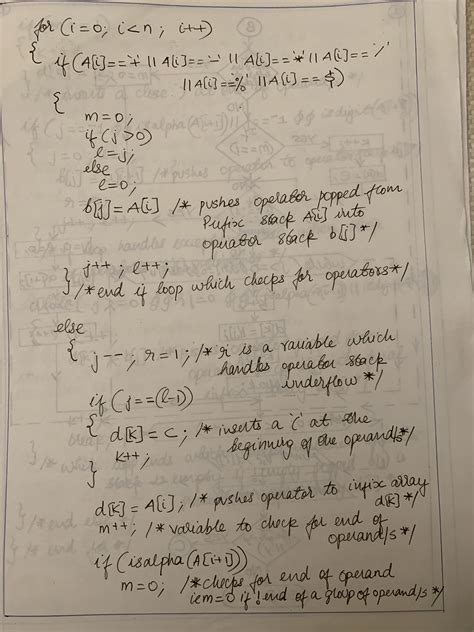 for (i=0; i<n; i++)
{ if (A[i]=='+' || A[i]=='-' || A[i]=='*' || A[i]=='/'
|| A[i]=='%' || A[i]=='$')
{
m=0;
if (j>0)
l=j;
else
l=0;
b[j]=A[i] /* pushes operator popped from
Prefix stack A[i] into
operator stack b[j] */
j++; l++;
} /* end if loop which checks for operators */
else
{ j--; r=1; /* r is a variable which
handles operator stack
underflow */
if (j==(l-1))
{ d[k]=c; /* inserts a '(' at the
beginning of the operand/s */
k++;
}
d[k]=A[i]; /* pushes operator to infix array
d[k] */
m++; /* variable to check for end of
operand/s */
if (isalpha(A[i+1]))
m=0; /* checks for end of operand
ie m=0 if ! end of a group of operand/s */